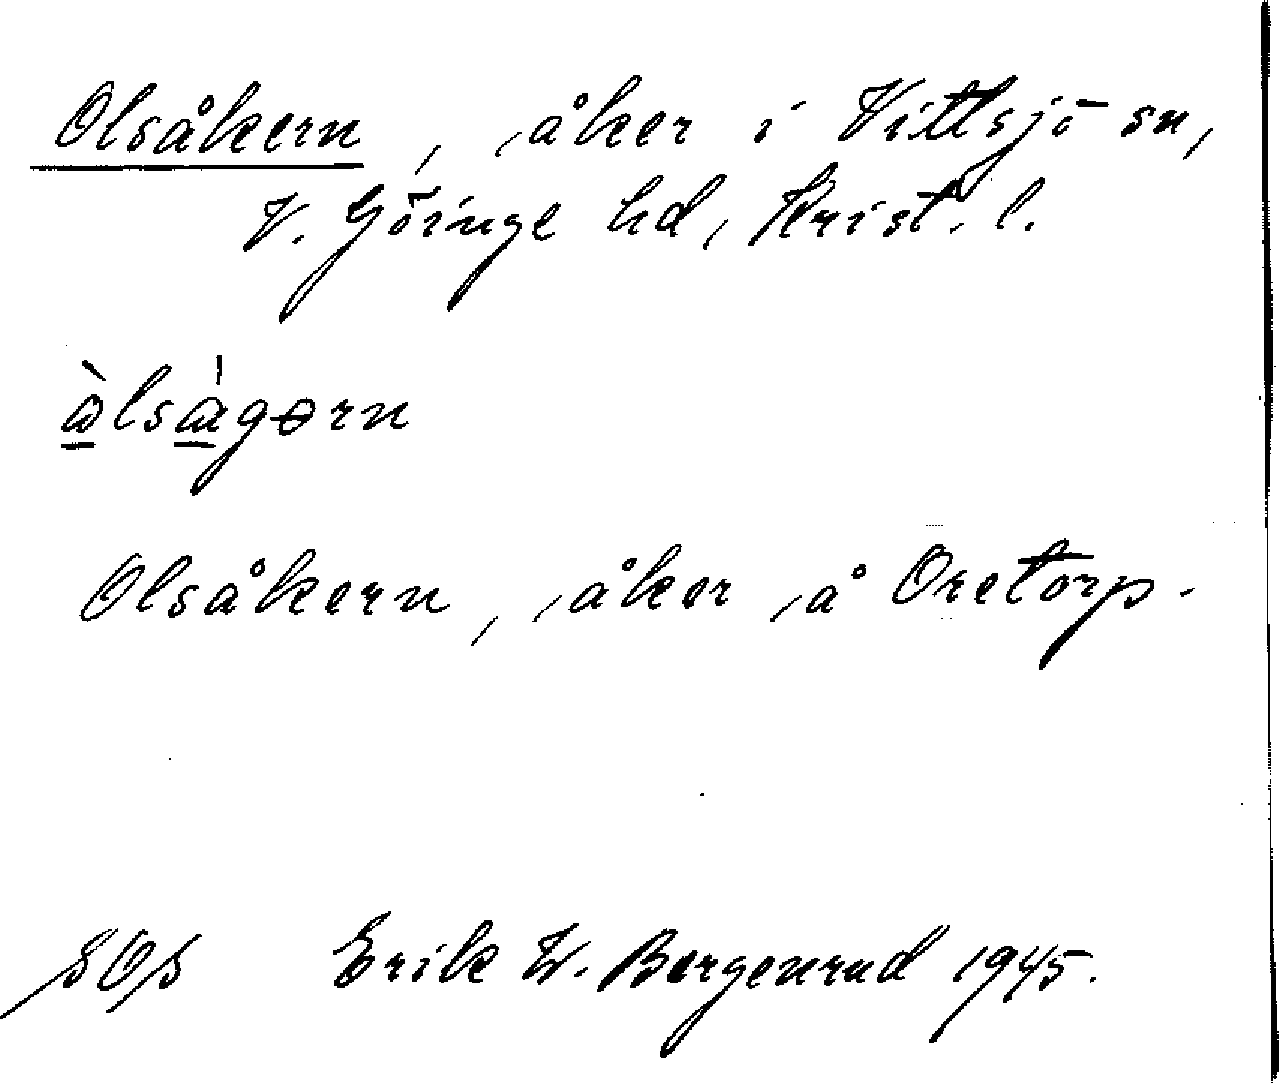 Olsåkern, åker i Vittsjö sn,
V. Göinge hd, Krist. l.
Olsåkern, åker å Oretorp.
Erik W. Bergenrud 1945.